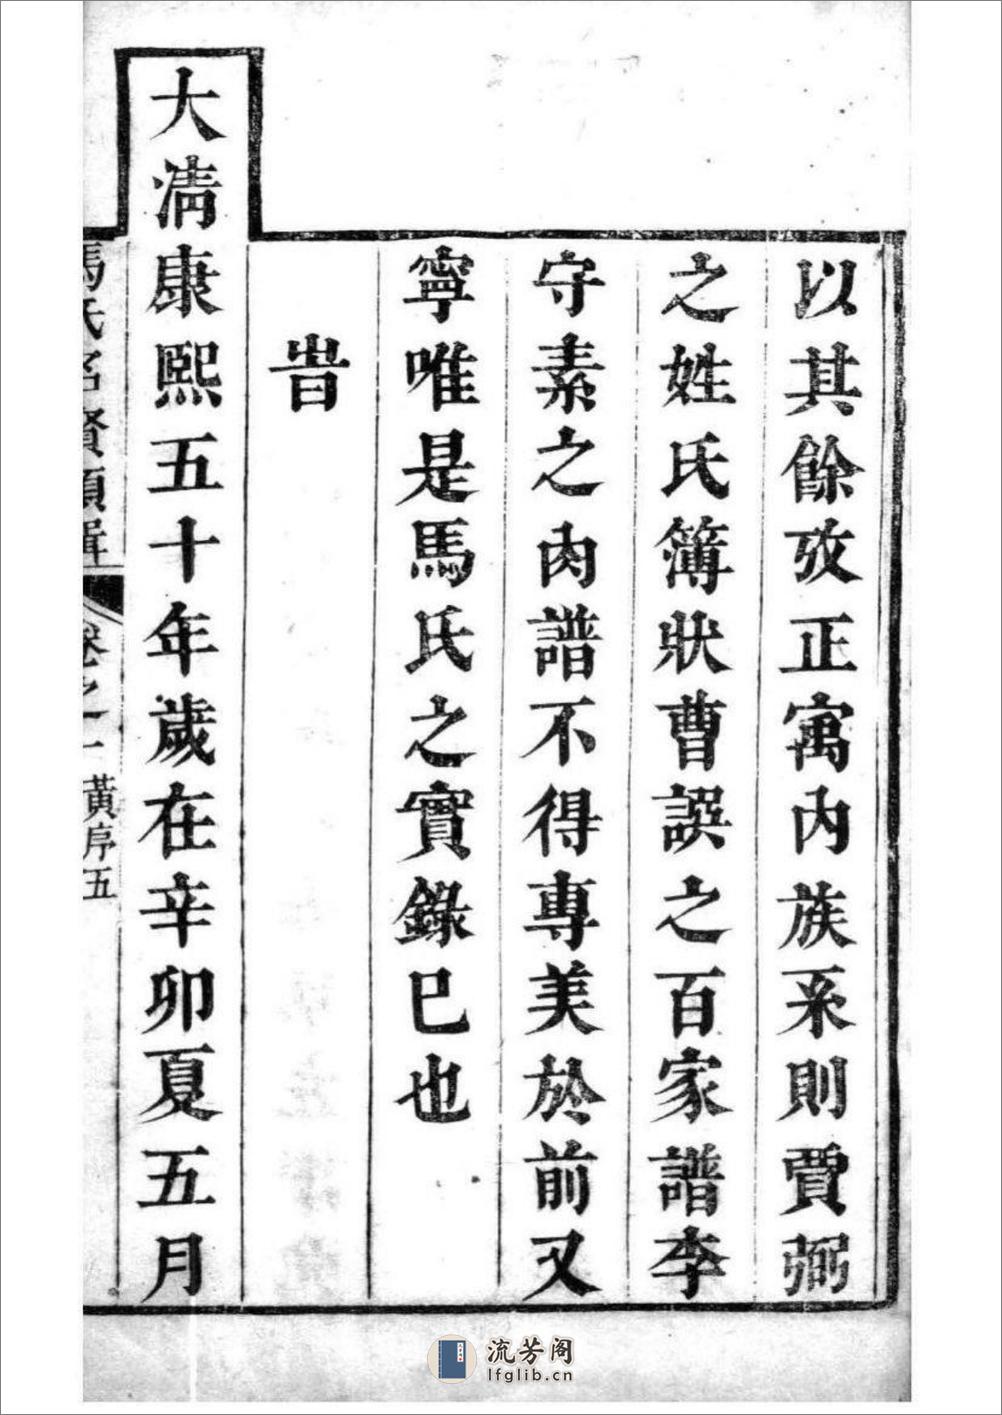 以其餘攷正寓内族系則賈弼
之姓氏簿狀曹誤之百家譜李
守素之肉譜不得專美於前又
寧唯是馬氏之實錄已也
旹
大清康熙五十年歲在辛卯夏五月
馬氏名賢類輯
卷之一
黃序五
流芳阁
lfglib.cn